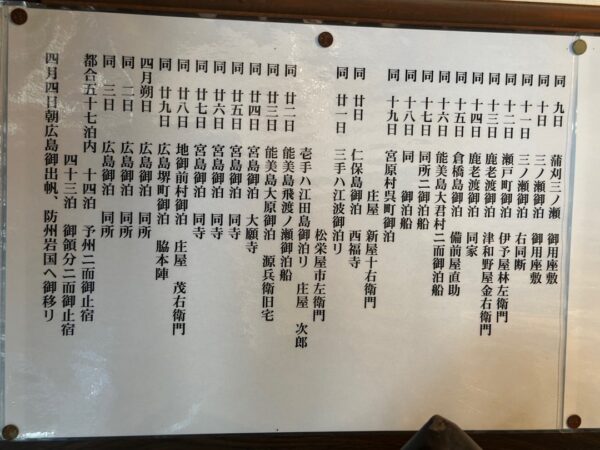 同　九日　蒲刈三ノ瀬　御用座敷
同　十日　三ノ瀬御泊　御用座敷
同　十一日　三ノ瀬御泊　右同断
同　十二日　瀬戸町御泊　伊予屋林左衛門
同　十三日　鹿老渡御泊　津和野屋金右衛門
同　十四日　鹿老渡御泊　同家
同　十五日　倉橋島御泊　備前屋直助
同　十六日　能美島大君村二而御泊船
同　十七日　同所二御泊船
同　十八日　同　御泊船
同　十九日　宮原村呉町御泊
庄屋　新屋十右衛門
同　廿日　仁保島御泊　西福寺
同　廿一日　三手ハ江波御泊リ
松栄屋市左衛門
壱手ハ江田島御泊リ　庄屋　次郎
同　廿二日　能美島飛渡ノ瀬御泊船
同　廿三日　能美島大原御泊　源兵衛旧宅
同　廿四日　宮島御泊　大願寺
同　廿五日　宮島御泊　同寺
同　廿六日　宮島御泊　同寺
同　廿七日　宮島御泊　同寺
同　廿八日　地御前村御泊　庄屋　茂右衛門
同　廿九日　広島堺町御泊　脇本陣
四月朔日　広島御泊　同所
同　二日　広島御泊　同所
同　三日　広島御泊　同所
都合五十七泊内　十四泊　予州二而御止宿
四十三泊　御領分二而御止宿
四月四日朝広島御出帆、防州岩国へ御移リ